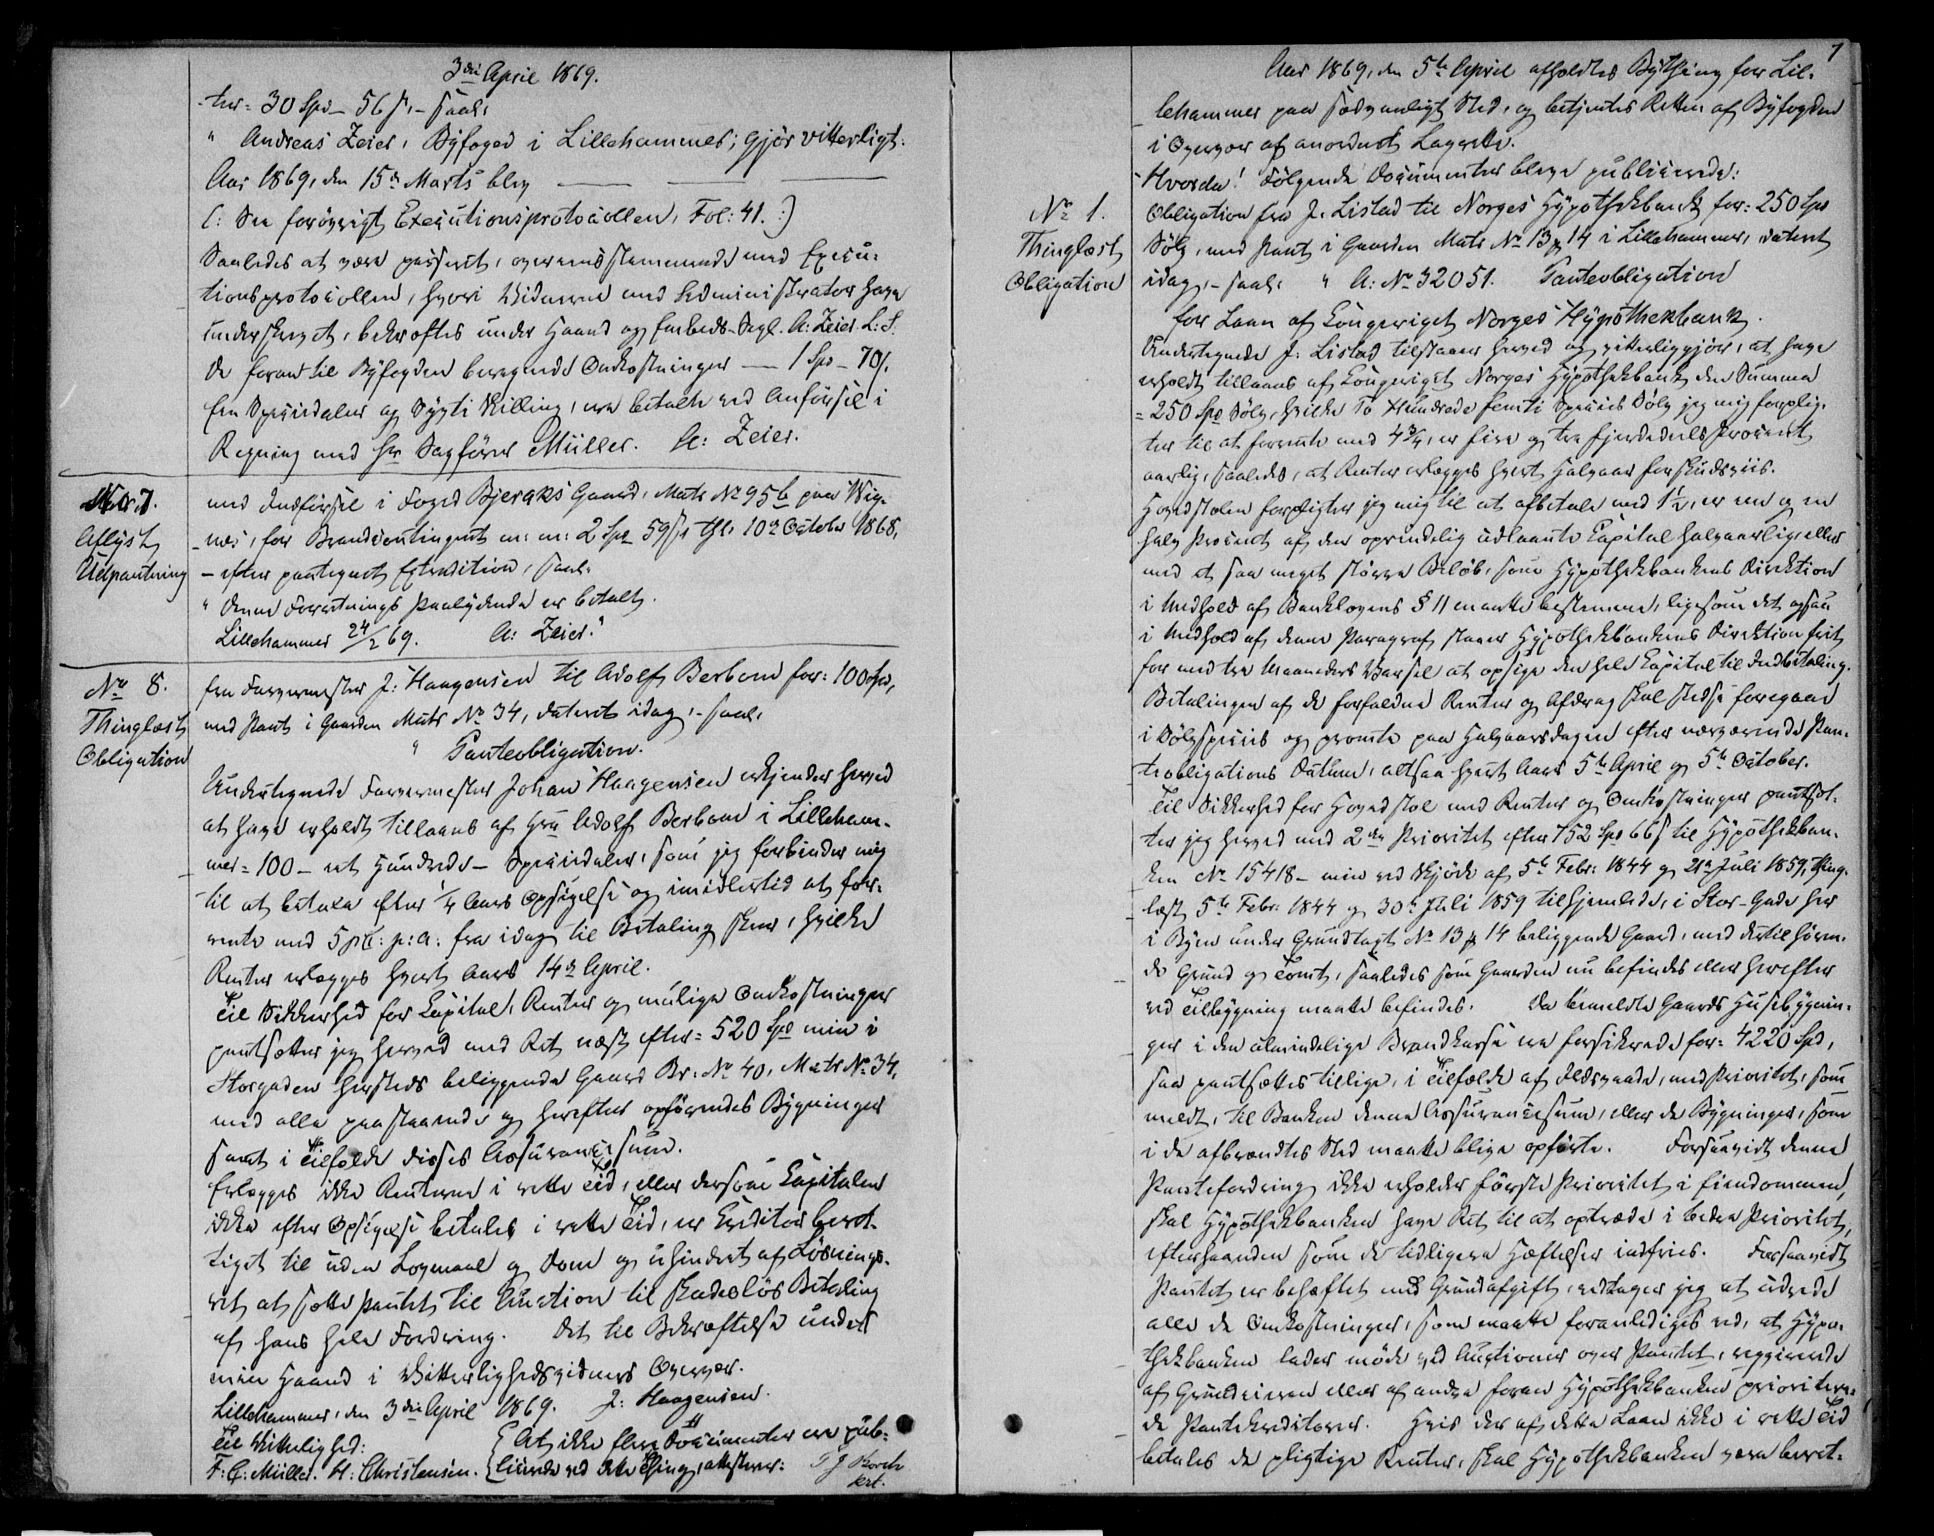 3die April 1869.
ter = 30 Spd – 56 s, – saal.
" Andreas Zeier, Byfoged i Lillehammer; gjør vitterligt:
Aar 1869, den 15de Marts blev — — —
(: See forøvrigt Executionsprotocollen, Fol: 41. :)
Saaledes at være passeret, overeensstemmende med Execu-
tionsprotocollen, hvori Vidnerne med Administrator have
underskrevet, bekræftes under Haand og Embeds-Segl. A: Zeier. L: S.
De foran til Byfogden beregnede Omkostninger — 1 Spd – 70 s.
Een Speciedaler og Sytti Skilling, ere betalte ved Anførsel i
Regning med Hr Sagfører Müller. A: Zeier.
No 7.
Aflyst
Udpantning
med Indførsel i Foged Bjeraks Gaard, Matr No 95b paa Vig-
næs, for Brandcontingent m: m: 2 Spd 59 s, thl. 10de October 1868,
– efter paategnet Extradition, saal.
" Denne Forretnings Paalydende er betalt.
Lillehammer 24/2 69. A: Zeier."
No 8.
Thinglæst
Obligation
fra Farvermester J: Haagensen til Adolf Berbom for: 100 Spd,
med Pant i Gaarden Matr No 34, dateret idag, – saal.
" Panteobligation.
Undertegnede Farvermester Johan Haagensen erkjender herved
at have erholdt tillaans af Hru Adolf Berbom i Lilleham-
mer = 100 – et Hundrede – Speciedaler, som jeg forbinder mig
til at betale efter 1/4 Aars Opsigelse og imidlertid at for-
rente med 5 pCt: p: a: fra idag til Betaling skeer, hvilke
Renter erlægges hvert Aars 14de April.
Til Sikkerhed for Capital, Renter og mulige Omkostninger
pantsætter jeg herved med Ret næst efter = 520 Spd min i
Storgaden hersteds beliggende Gaard Br: No 40, Matr No 34,
med alle paastaaende og herefter opførendes Bygninger
samt i Tilfælde disses Assurancesum.
Erlægges ikke Renterne i rette Tid, eller dersom Capitalen
ikke efter Opsigelse betales i rette Tid, er Creditor beret-
tiget til uden Lovmaal og Dom og uhindret af Løsnings-
ret at sætte Pantet til Auction til skadesløs Betaling
af hans hele Fordring. Det til Bekræftelse under
min Haand i Vitterlighedsvidners Overvær.
Lillehammer, den 3die April 1869. J: Haagensen.
Til Vitterlighed:
F: C: Müller. H: Christensen.
At ikke flere Documenter ere pub-
licerede ved dette Thing, attesterer:
7
Aar 1869, den 5te April afholdtes Bything for Lil-
lehammer paa sædvanligt Sted, og betjentes Retten af Byfogden
i Overvær af anordnet Lagrette.
Hvorda! Følgende Documenter bleve publicerede:
No 1.
Thinglæst
Obligation
Obligation fra J. Listad til Norges Hypothekbank for: 250 Spd
Sølv, med Pant i Gaarden Matr No 13 & 14 i Lillehammer, dateret
idag, – saal. " A: No 32051. Panteobligation
for Laan af Kongeriget Norges Hypothekbank.
Undertegnede J: Listad tilstaaer herved og vitterliggjør, at have
erholdt tillaans af Kongeriget Norges Hypothekbank den Summa
= 250 Spd Sølv, hvilke To Hundrede Femti Species Sølv jeg mig forplig-
ter til at forrente med 4 3/4, er fire og tre fjerdedeels Procent
aarlig, saaledes, at Renter erlægges hvert Halvaar forskudsviis.
Hovedstolen forpligter jeg mig til at afbetale med 1 1/2, er een og en
halv Procent af den oprindelig udlaante Capital halvaarlig, eller
med et saa meget større Beløb, som Hypothekbankens Direktion
i Medhold af Banklovens § 11 maatte bestemme, ligesom det ogsaa
i Medhold af denne Paragraf staaer Hypothekbankens Direktion frit
for med tre Maaneders Varsel at opsige den hele Capital til Indbetaling.
Betalingen af de forfaldne Renter og Afdrag skal stedse foregaae
i Sølvspecies og promte paa Halvaarsdagen efter nærværende Pan-
teobligations Datum, altsaa hvert Aars 5te April og 5te October.
Til Sikkerhed for Hovedstol med Renter og Omkostninger pantsæt-
ter jeg herved med 2den Prioritet efter 752 Spd 66 s til Hypothekban-
ken No 15418 – min ved Skjøde af 5te Febr: 1844 og 21de Juli 1859, thing-
læst 5te Febr: 1844 og 30te Juli 1859 tilhjemlede, i Stor-Gade her
i Byen under Grundtaxt No 13 & 14 beliggende Gaard, med dertil høren-
de Grund og Tomt, saaledes som Gaarden nu befindes eller herefter
ved Tilbygning maatte befindes. Da bemeldte Gaards Husebygnin-
ger i den almindelige Brandkasse ere forsikrede for = 4220 Spd,
saa pantsættes tillige, i Tilfælde af Ildsvaade, med Prioritet, som
meldt, til Banken denne Assurancesum, eller de Bygninger, som
i de afbrændtes Sted maatte blive opførte. Forsaavidt denne
Pantefordring ikke erholder første Prioritet i Eiendommen,
skal Hypothekbanken have Ret til at optræde i bedre Prioritet,
efterhaanden som de tidligere Hæftelser indfries. Forsaavidt
Pantet er behæftet med Grundafgift, vedtager jeg at udrede
alle de Omkostninger, som maatte foranlediges ved, at Hypo-
thekbanken lader møde ved Auctioner over Pantet, reqvirerede
af Grundeieren eller af andre foran Hypothekbanken prioritere-
de Pantekreditorer. Hvis der af dette Laan ikke i rette Tid
betales de pligtige Renter, skal Hypothekbanken være beret-